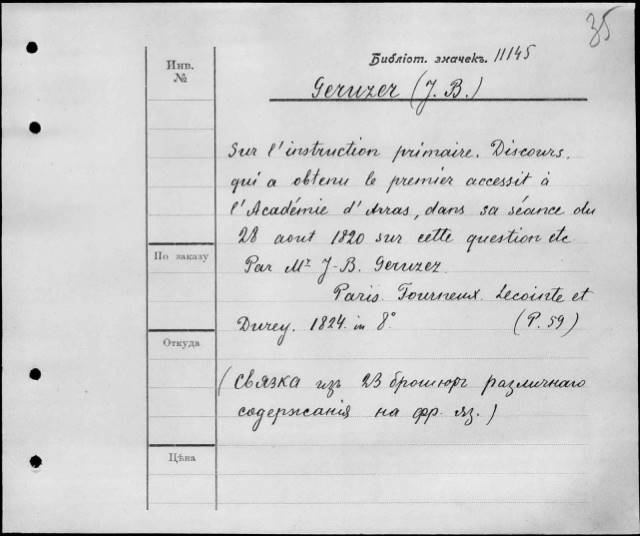 35
Инв.
№
Библіот. значекъ. 11145
Geruzer (J. B.)
Sur l'instruction primaire. Discours.
qui a obtenu le premier accessit à
l'Académie d'Arras, dans sa séance du
28 aout 1820 sur cette question etc
По заказу
Par Mr J-B. Geruzez.
Paris. Tourneux. Lecointe et
Durey. 1824. in 8° (P. 59)
Откуда
(Связка изъ 23 брошюръ различнаго
содержанія на фр. яз.)
Цѣна